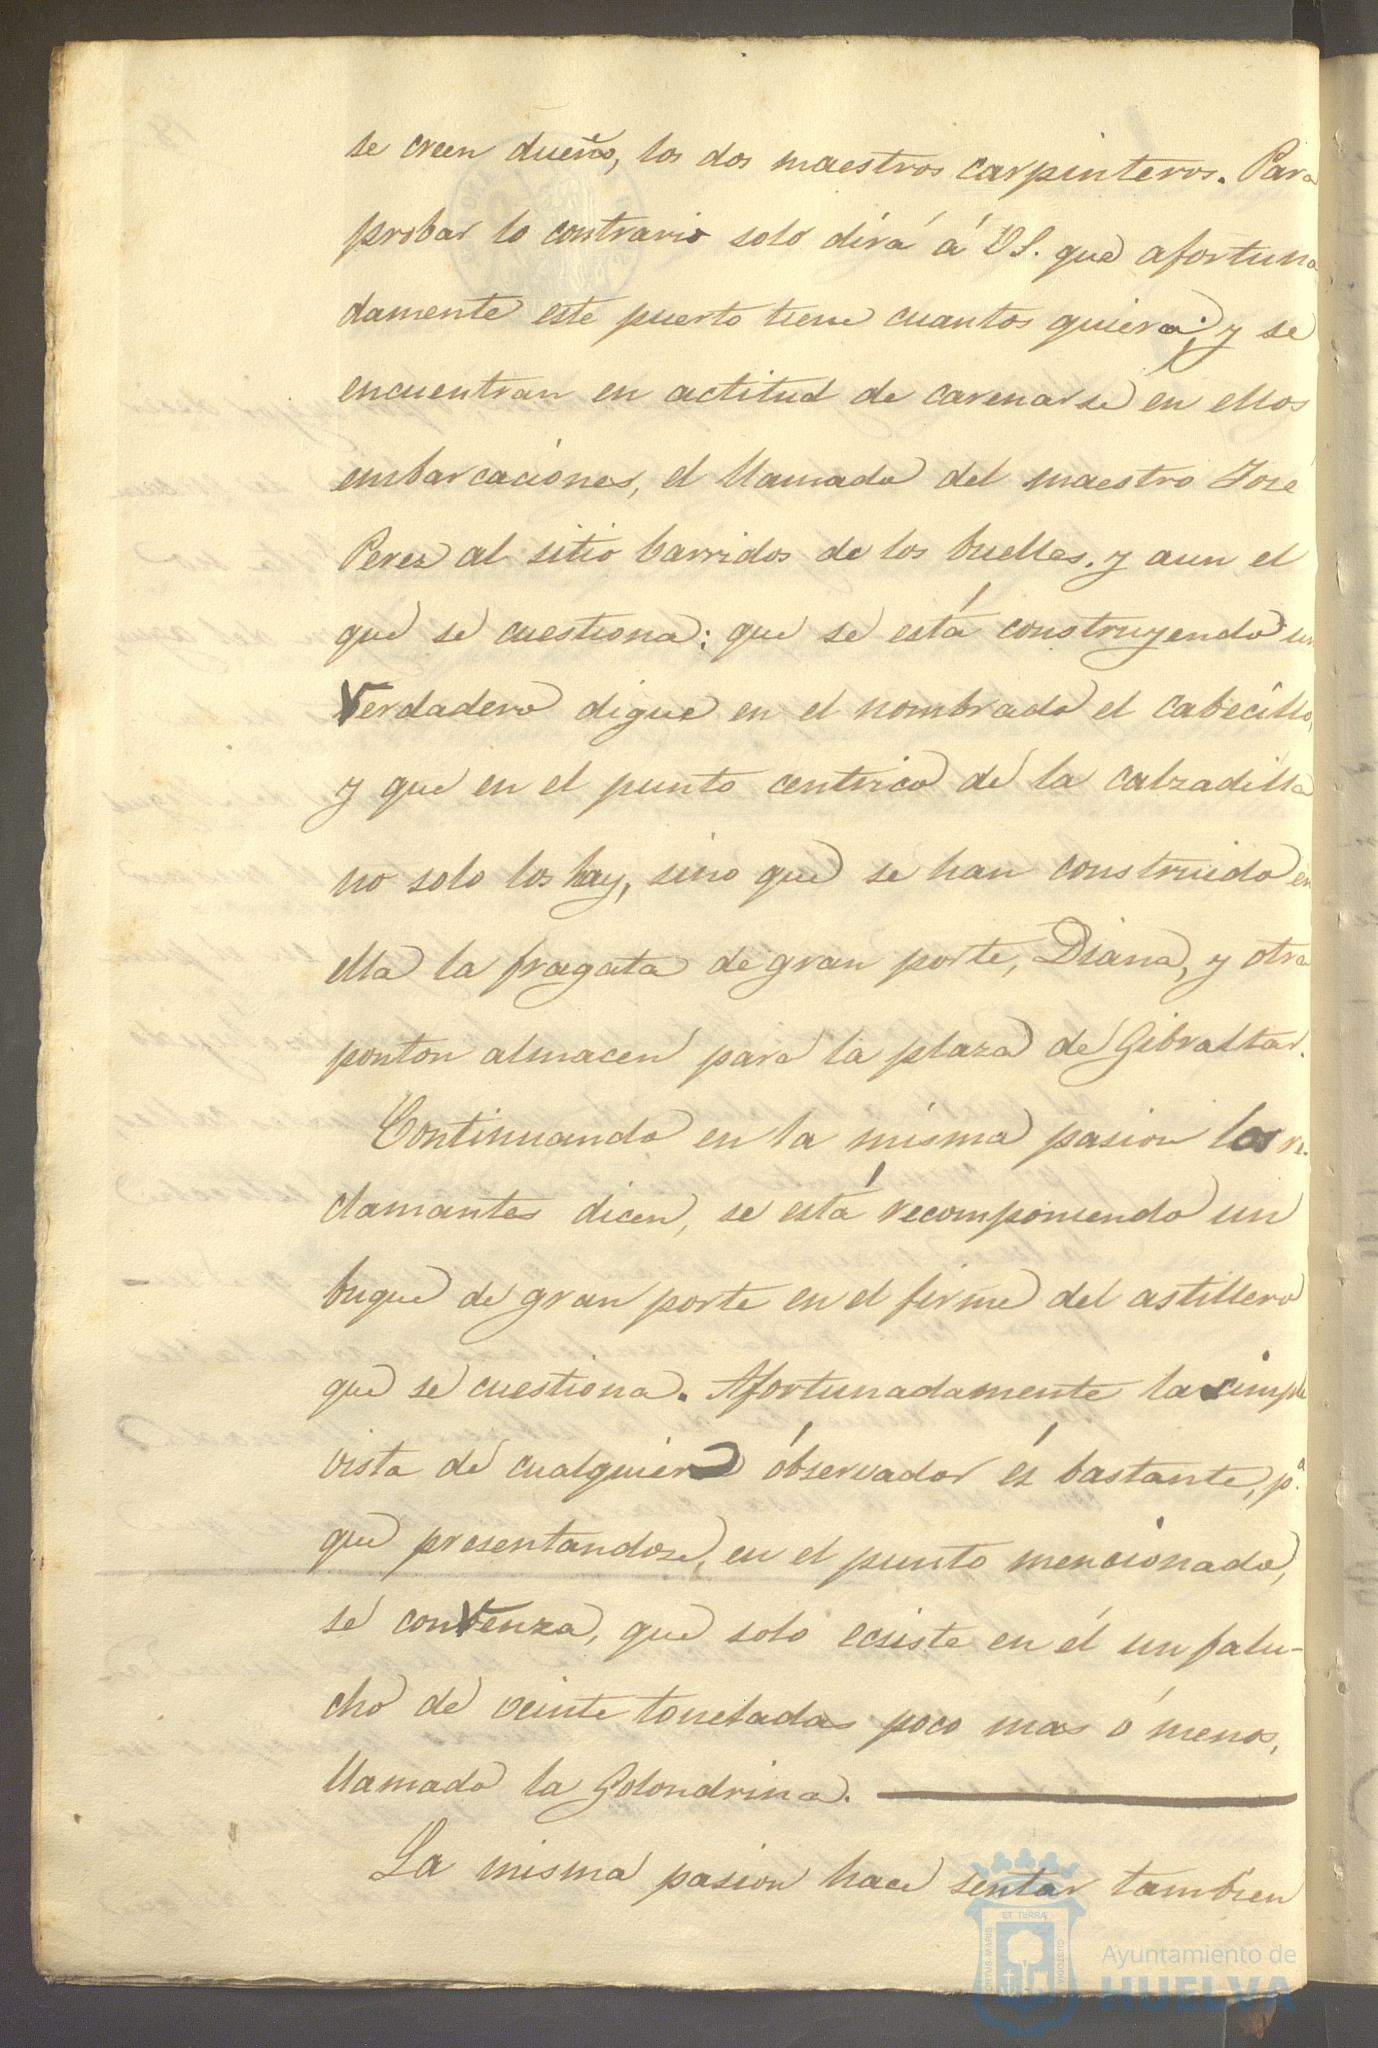 se creen dueño, los dos maestros carpinteros. Para
probar lo contrario solo dirá á V.S. que afortuna
damente este puerto tiene cuantos quiera; y se
encuentran en actitud de carenarse en ellos
embarcaciones, el llamado del maestro José
Perez al sitio barridos de los buelles. y aun el
que se cuestiona: que se está construyendo un
Verdadero digue en el nombrado el cabecillo,
y que en el punto centrico de la calzadilla
no solo los hay, sino que se han construido en
ella la fragata de gran porte, Diana, y otra
ponton almacen para la plaza de Gibraltar.
Continuando en la misma pasion los re
clamantes dicen, se está recomponiendo un
buque de gran porte en el firme del astillero
que se cuestiona. Afortunadamente la simple
vista de cualquiera óbservador és bastante, pª
que presentandose, en el punto mencionado,
se conVenza, que solo ecsiste en él un falu-
cho de veinte toneladas poco mas ó menos,
llamado la Golondrina.
La misma pasion hace sentar tambien
Ayuntamiento de
HUELVA